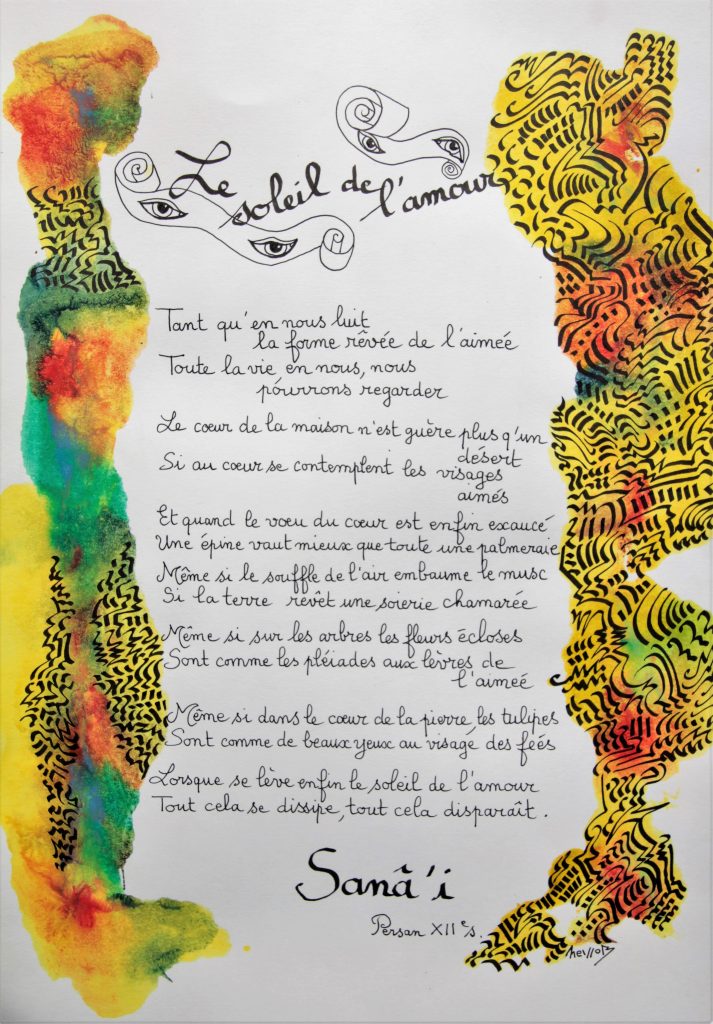 Le soleil de l'amour
Tant qu'en nous luit
la forme rêvée de l'aimeé
Toute la vie en nous, nous
pourrons regarder
Le cœur de la maison n'est guère plus q'un
désert
Si au cœur se contemplent les visages
aimés
Et quand le vœu du cœur est enfin exaucé
Une épine vaut mieux que toute une palmeraie
Même si le souffle de l'air embaume le musc
Si la terre revêt une soierie chamarée
Même si sur les arbres les fleurs écloses
Sont comme les pléiades aux lèvres de
l'aimeé
Même si dans le cœur de la pierre, les tulipes
Sont comme de beaux yeux au visage des feés
Lorsque se lève enfin le soleil de l'amour
Tout cela se dissipe, tout cela disparaît.
Sanâ'i
Persan XII e/s.